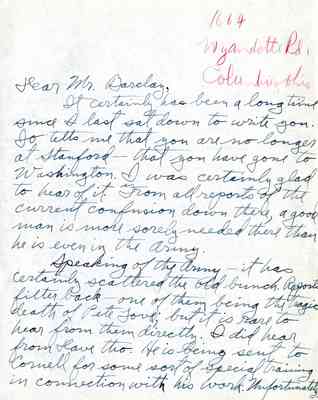 1664
Wyandotte Rd.
Columbus, Ohio
Dear Mr. Barclay,
It certainly has been a long time
since I last sat down to write you.
Jo tells me that you are no longer
at Stanford - that you have gone to
Washington. I was certainly glad
to hear of it. From all reports of the
current confusion down there, a good
man is more sorely needed there than
he is even in the Army.
Speaking of the Army - it has
certainly scattered the old bunch. Reports
filter back - one of them being the tragic
death of Pete - but it is rare to
hear from them directly. I did hear
from Dave tho. He is being sent to
Cornell for some sort of special training
in connection with his work. Unfortunately